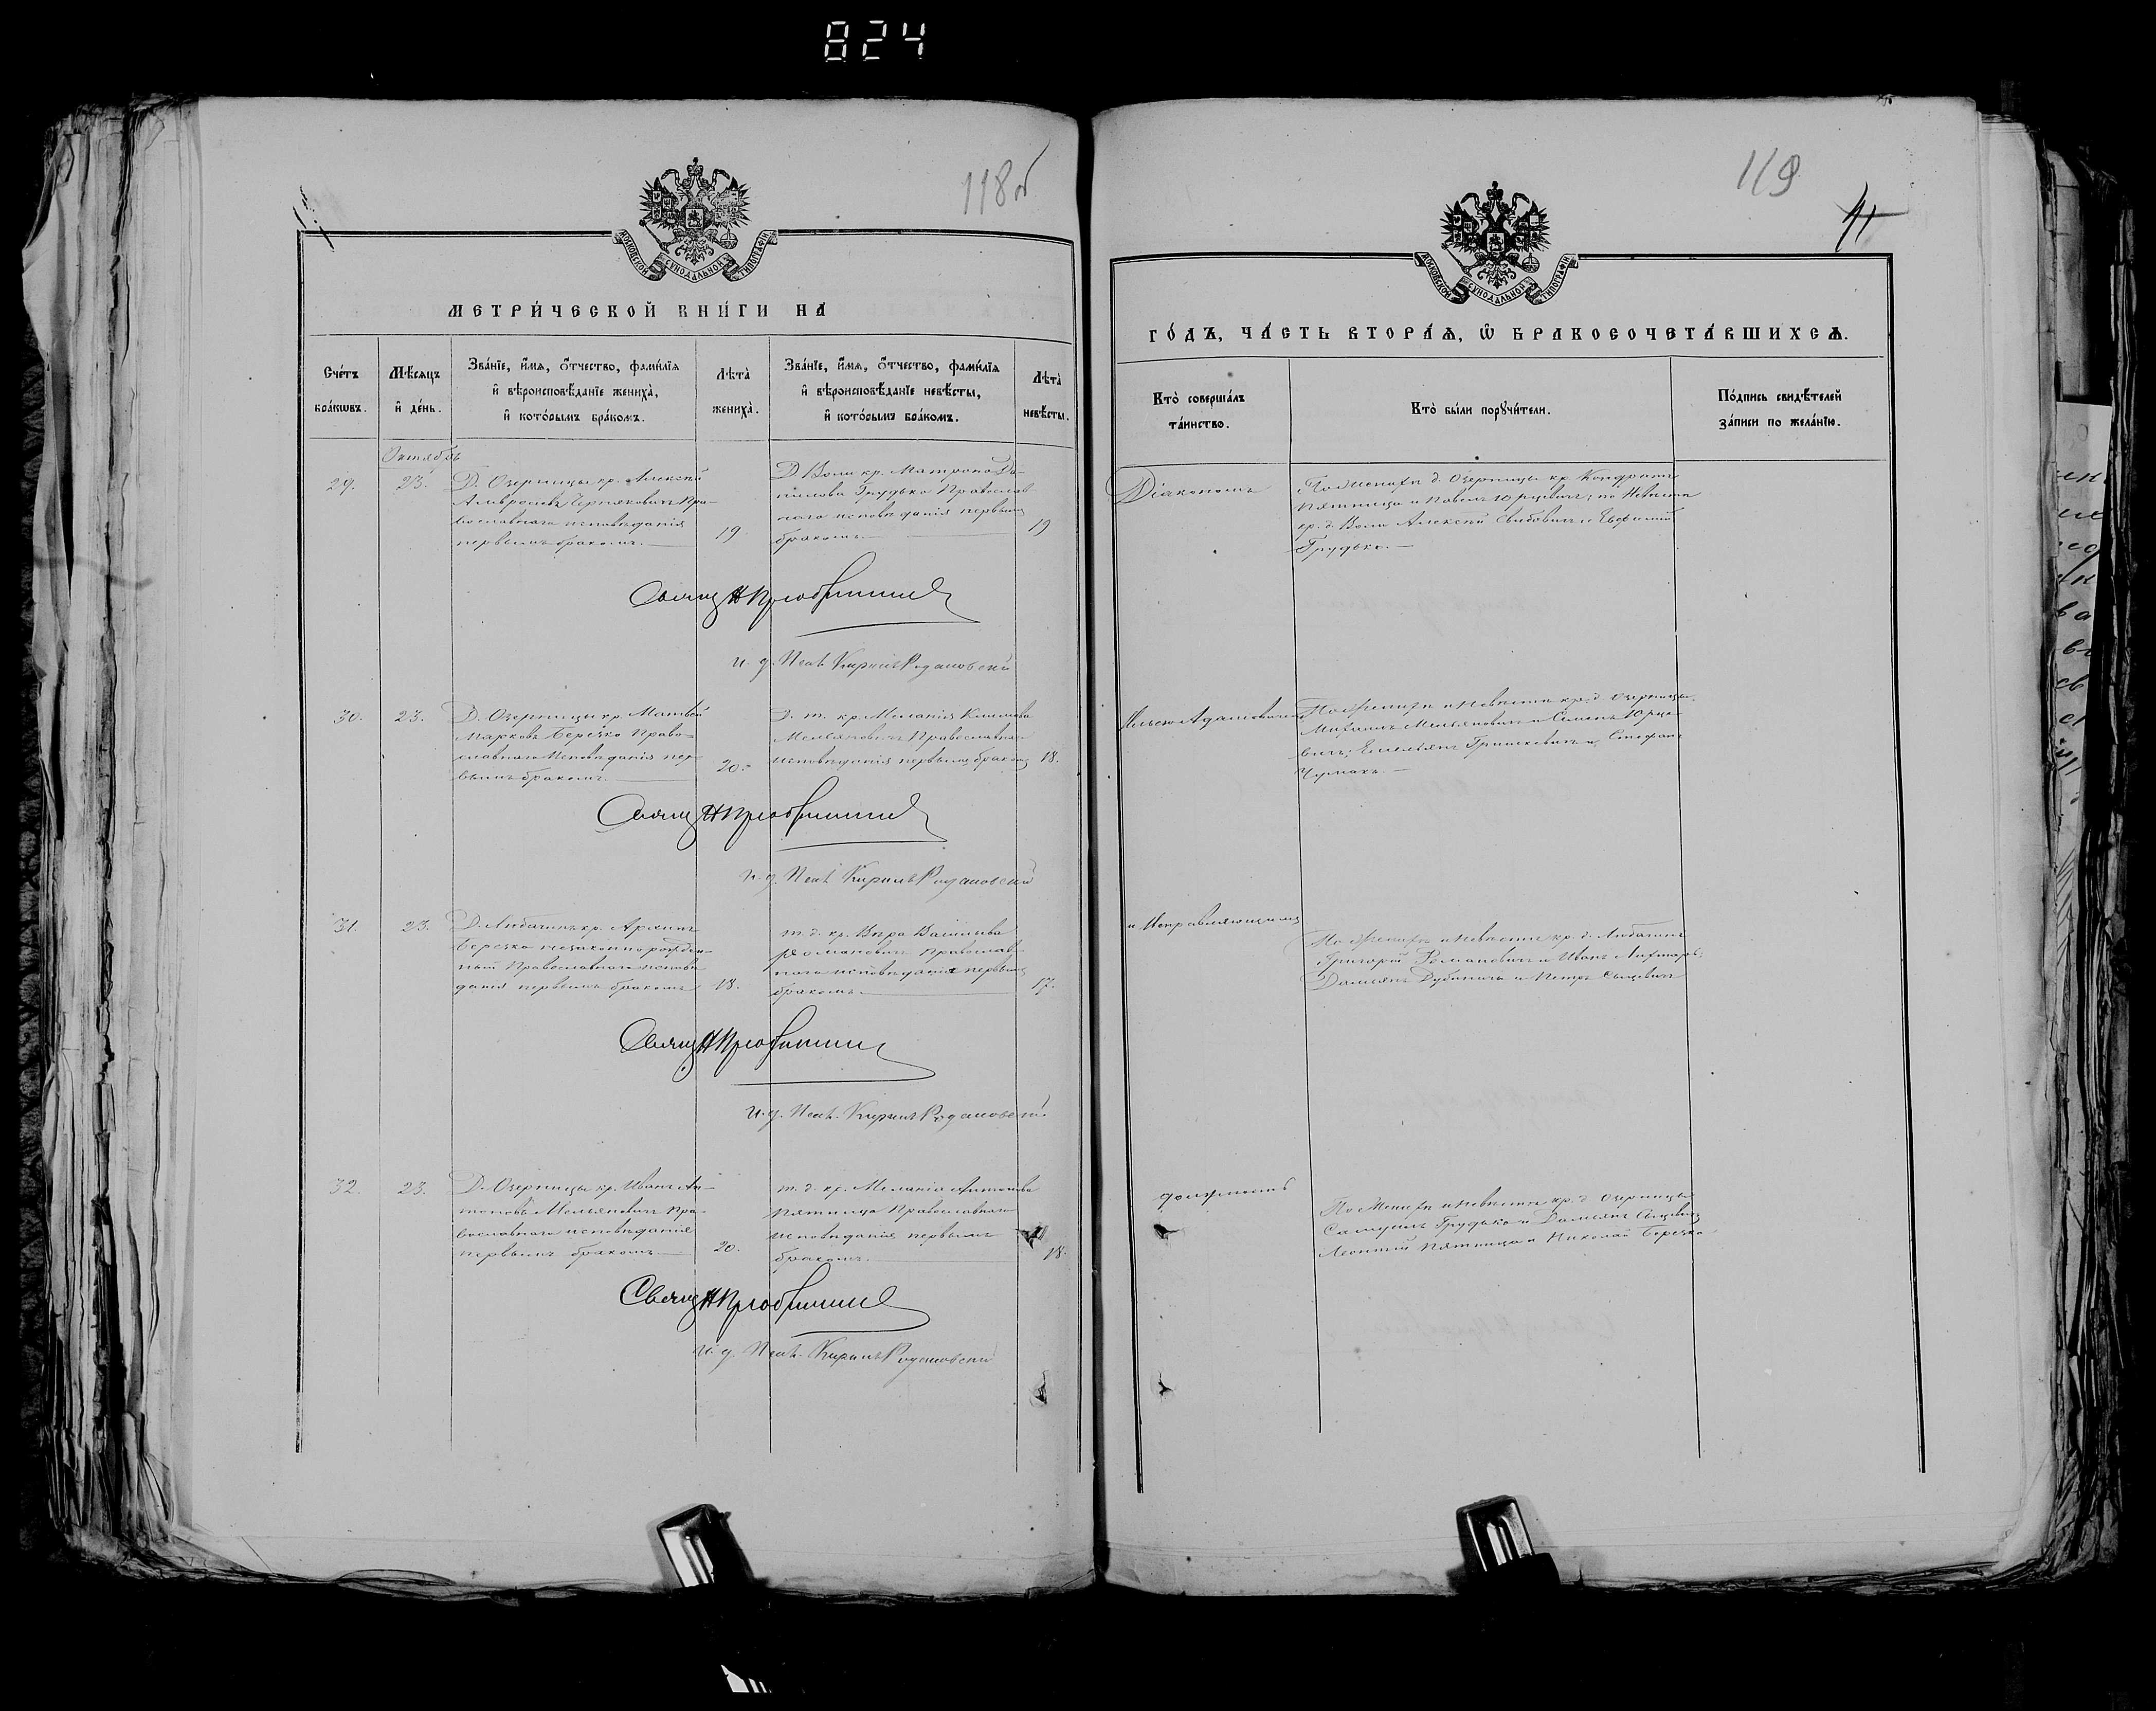 824
118об
МОСКОВСКОЙ СѴНОДАЛЬНОЙ ТИПОГРАФІИ
МЕТРИ́ЧЕСКОЙ КНИ́ГИ НА̀
Сче́тъ бра́кѡвъ.
Мѣ́сяцъ и҆ де́нь.
Зва́нїе, и҆́мѧ, ѻ҆́тчество, фами́лїѧ
и҆ вѣроисповѣ́данїе жениха̀,
и҆ кото́рымъ бра́комъ.
Лѣта̀ жениха̀.
Зва́нїе, и҆́мѧ, ѻ҆́тчество, фами́лїѧ
и҆ вѣроисповѣ́данїе невѣ́сты,
и҆ кото́рымъ бра́комъ.
Лѣта̀ невѣ́сты.
Октябрь
29. 23.
Д. Озерницы кр. Алексѣй
Амвросіевъ Чернякович Пра-
вославнаго исповѣданія
первымъ бракомъ.
19
Д. Воли кр. Матрона Да-
нилова Грудько Православ-
наго исповѣданія первымъ
бракомъ.
19
Свящ Н Преображенскій
и. д. Псал. Кирилъ Родановскій
30. 23.
Д. Озерницы кр. Матвей
Марковъ Березко Право-
славнаго исповѣданія пер-
вымъ бракомъ.
20.
Д. т. кр. Меланія Климова
Мельяновичъ Православнаго
исповѣданія первымъ бракомъ
18.
Свящ Н Преображенскій
и. д. Псал. Кирилъ Родановскій
31. 23.
Д. Любачинъ кр. Архипъ
Березко незаконнорожден-
ный Православнаго исповѣ-
данія первымъ бракомъ
18.
т. д. кр. Вѣра Васильева
Романовичъ Православ-
наго исповѣданія первымъ
бракомъ.
17.
Свящ Н Преображенскій
и. д. Псал. Кирилъ Родановскій
32. 23.
Д. Озерницы кр. Иванъ Ан-
тоновъ Мельяновичъ Пра-
вославнаго исповѣданія
первымъ бракомъ.
20.
т. д. кр. Меланія Антонова
Пятница Православнаго
исповѣданія первымъ
бракомъ.
18.
Свящ Н Преображенскій
и. д. Псал. Кирилъ Родановскій
119
41
МОСКОВСКОЙ СѴНОДАЛЬНОЙ ТИПОГРАФІИ
ГО́ДЪ, ЧА́СТЬ ВТОРА́Ѧ, Ѽ БРАКОСОЧЕТА́ВШИХСѦ.
Кто̀ соверша́лъ
та́инство.
Кто̀ бы́ли порꙋчи́тели.
По́дпись свидѣ́телей
за́писи по жела́нїю.
Діакономъ
По Женихѣ д. Озерницы кр. Кондратъ
Пятница и Павелъ Юрцевичъ; по Невѣсте
кр. д. Воли Алексѣй Свибовичъ и Евфимій
Грудько.
По Женихѣ и Невѣсте кр. д. Озерницы
Михаилъ Мельяновичъ и Семенъ Юрце-
вичъ; Емельянъ Гринкевичъ и Стефанъ
Чумакъ.
и Исправляющимъ
По Женихѣ и Невѣсте кр. д. Любачинъ
Григорій Романовичъ и Иванъ
Дамьянъ и Петръ Сыцевичъ
должность
По Женихѣ и Невѣсте кр. д. Озерницы
Самуилъ Грудько и Дамьянъ Сыцевичъ
Леонтій Пятница и Николай Березко